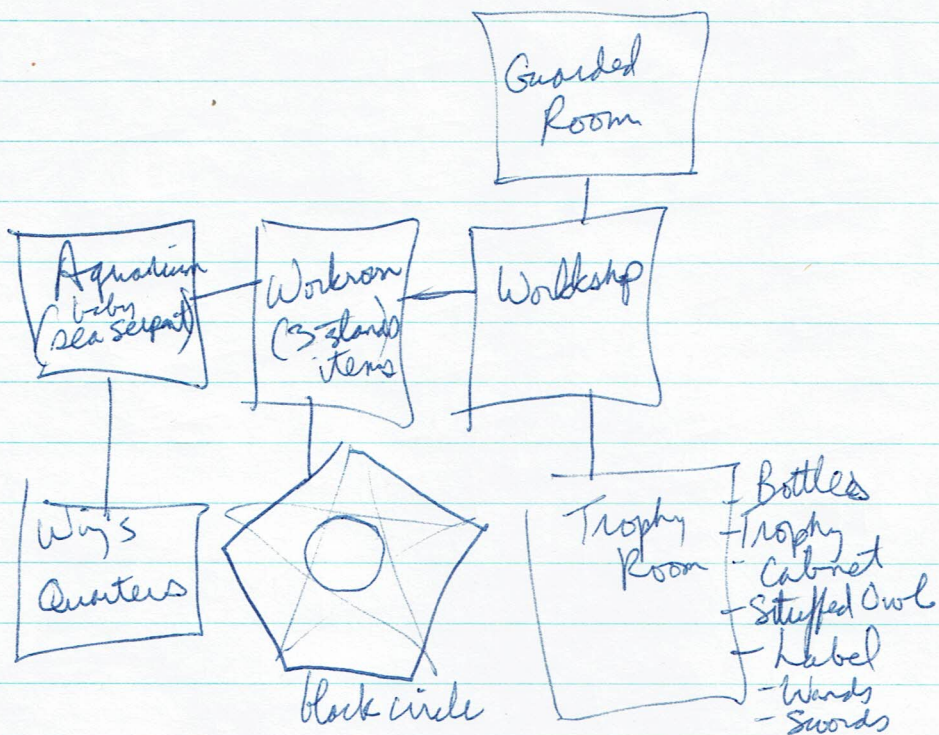 Guarded
Room
Aquarium
baby
(sea serpent)
Workroom
(3 stands
items
Workshop
Wiz's
Quarters
black circle
Trophy
Room
- Bottles
- Trophy
Cabinet
- Stuffed Owl
- Label
- Wands
- Swords